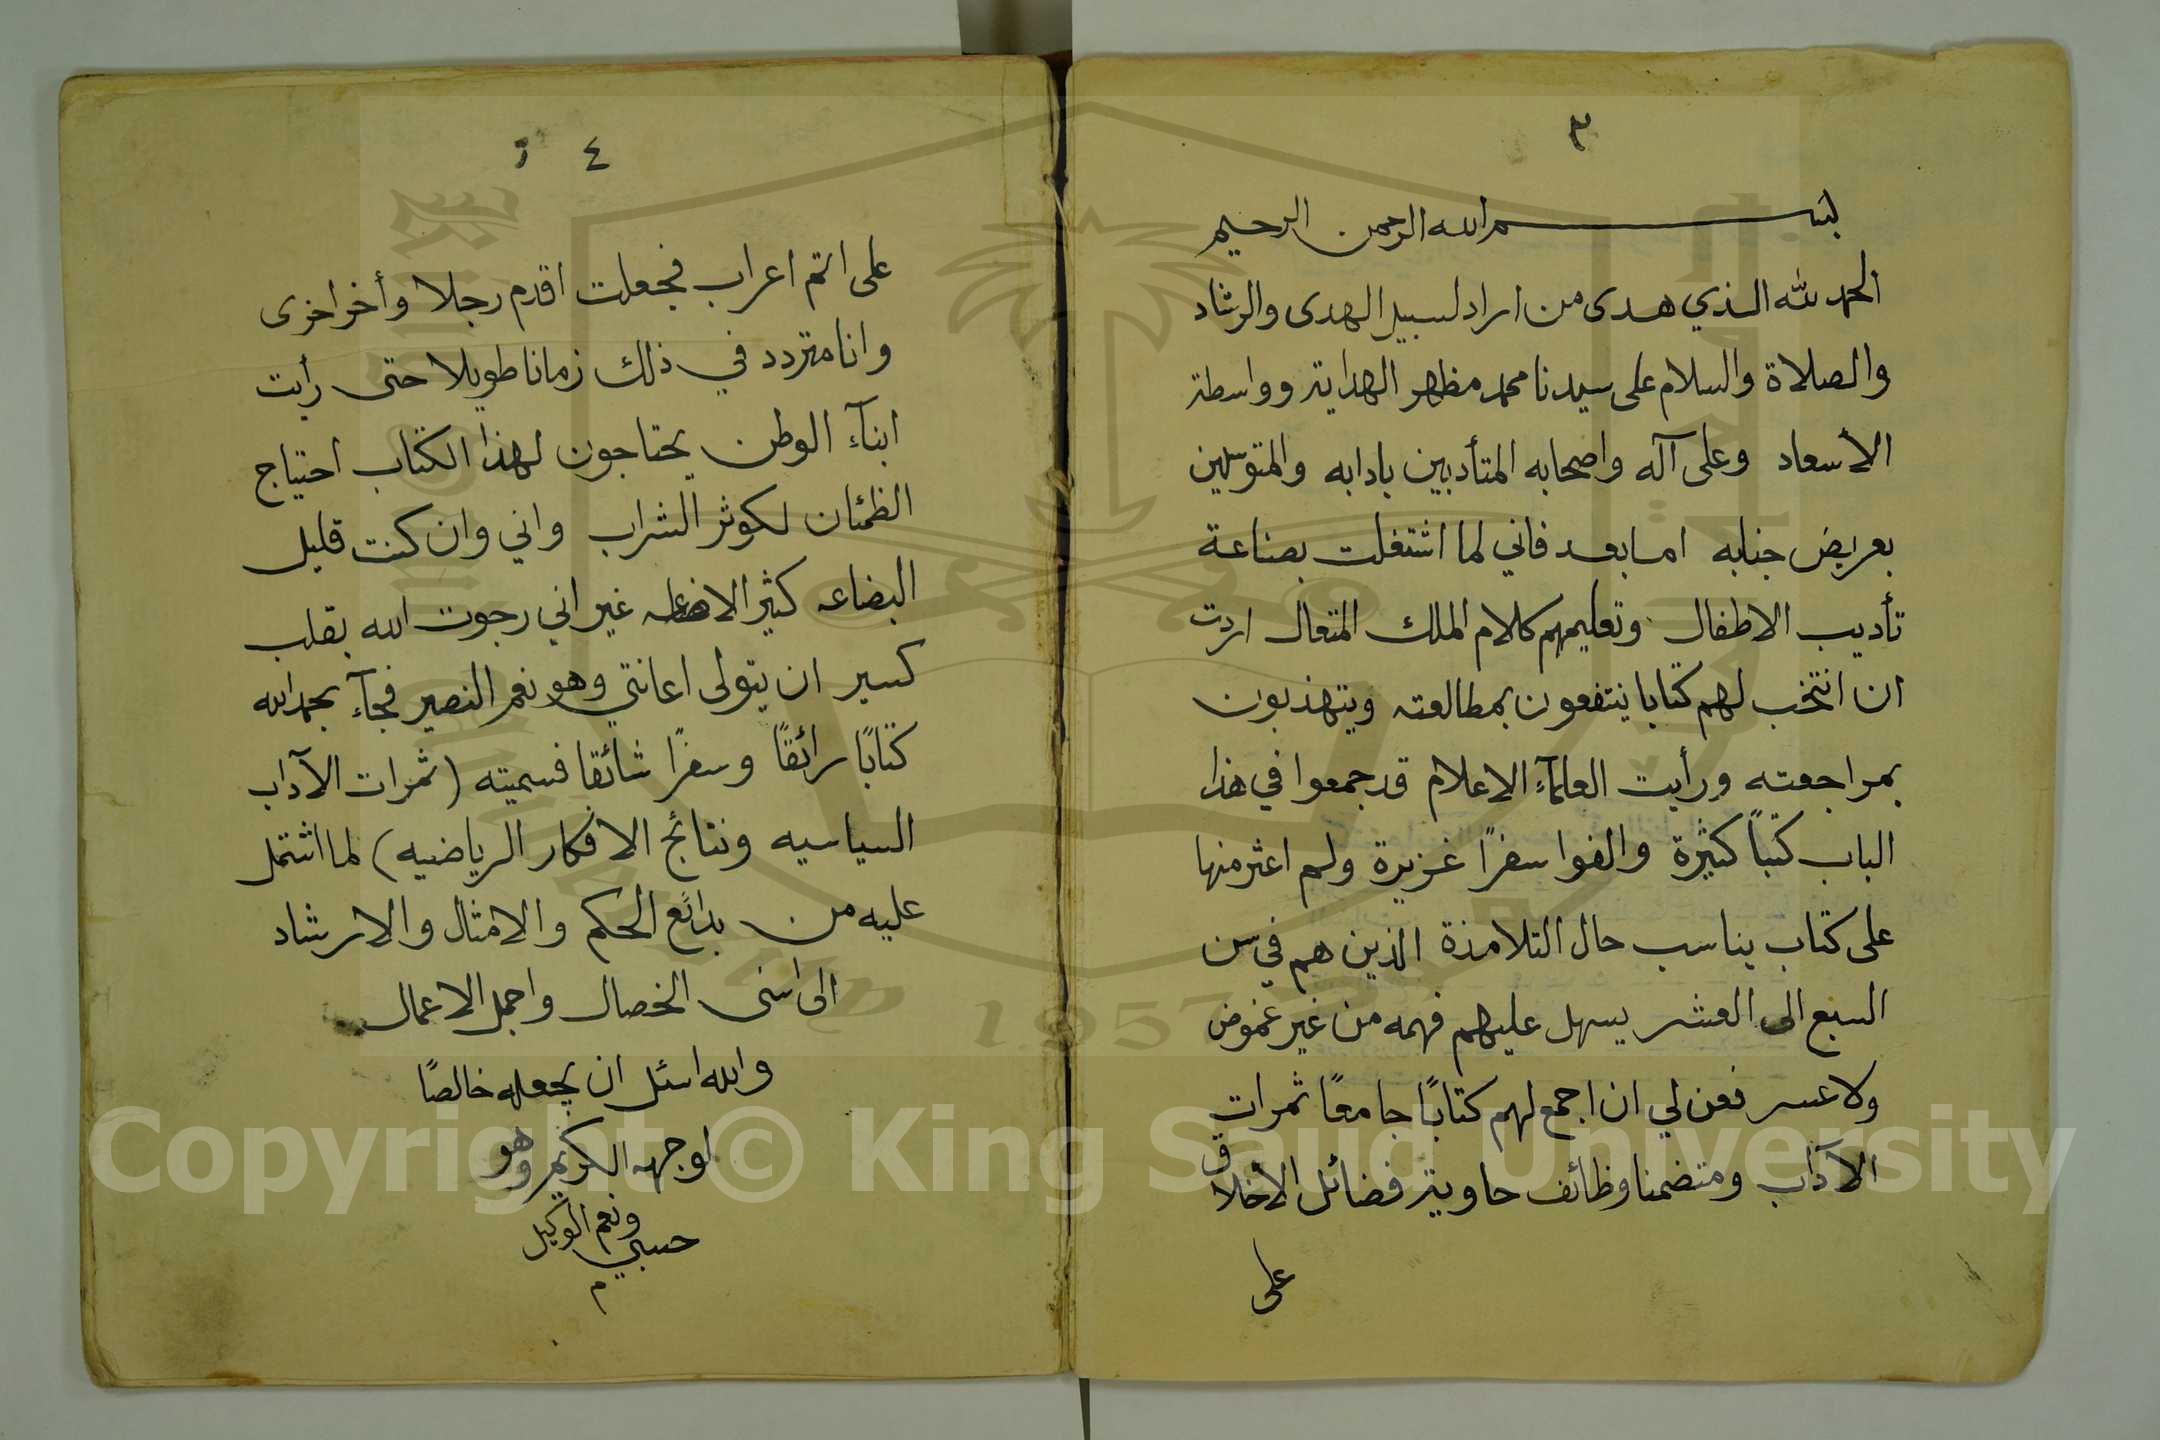 ٣
بسم الله الرحمن الرحيم
الحمد لله الذي هدى من اراد لسبيل الهدى والرشاد
والصلاة والسلام على سيدنا محمد مظهر الهداية وواسطة
الأسعاد وعلى آله واصحابه المتأدبين بادابه والمتوسلين
بعريض جنابه اما بعد فاني لما اشتغلت بصناعة
تأديب الاطفال وتعليمهم كلام الملك المتعال اردت
ان انتخب لهم كتابا ينتفعون بمطالعته ويتهذبون
بمراجعته ورأيت العلمآء الاعلام قد جمعوا في هذا
الباب كتباً كثيرة والفوا سفرًا غزيرة ولم اعثر منها
على كتاب يناسب حال التلامذة الذين هم في سن
السبع الى العشر يسهل عليهم فهمه من غير غموض
ولا عسر فعن لي ان اجمع لهم كتابًا جامعًا ثمرات
الآداب ومتضمنا وظائف حاوية فضائل الأخلاق
على
٤
على اتم اعراب فجعلت اقدم رجلا وأخر اخرى
وانا متردد في ذلك زمانا طويلا حتى رأيت
ابنآء الوطن يحتاجون لهذا الكتاب احتياج
الظمئان لكوثر الشراب واني وان كنت قليل
البضاعه كثير الاضاعه غير اني رجوت الله بقلب
كسير ان يتولى اعانتي وهو نعم النصير فجآء بحمد الله
كتابًا رائقًا وسفرًا شائقا فسميته (ثمرات الآداب
السياسيه ونتائج الافكار الرياضيه) لما اشتمل
عليه من بدائع الحكم والامثال والارشاد
الى اسنى الخصال واجمل الاعمال
والله اسئل ان يجعله خالصًا
لوجهه الكريم وهو
حسبي ونعم الوكيل
م
Copyright © King Saud University
1957